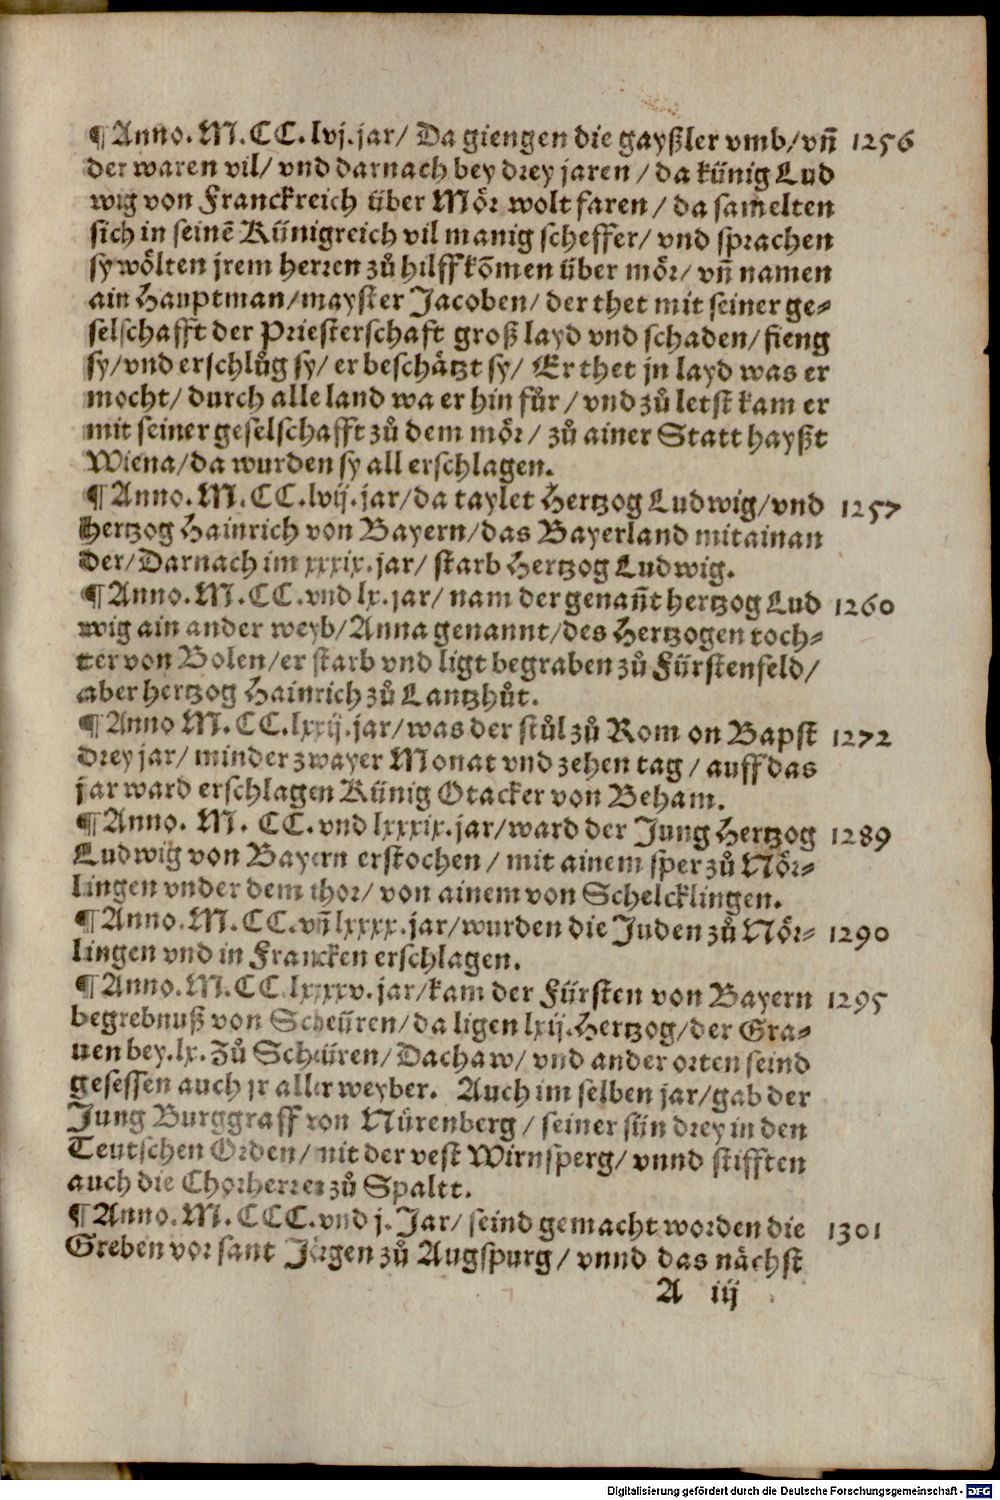 ¶Anno. M. CC. lvj. jar/ Da giengen die gayßler vmb/ vñ 1256
der waren vil/ vnd darnach bey drey jaren / da künig Lud
wig von Franckreich über Mör wolt faren / da samelten
sich in seinē Künigreich vil manig scheffer/ vnd sprachen
sy wölten jrem herren zů hilff kōmen über mör/ vñ namen
ain Hauptman/ mayster Jacoben/ der thet mit seiner ge⸗
selschafft der Priesterschaft groß layd vnd schaden/ fieng
sy/ vnd erschlůg sy/ er beschätzt sy/ Er thet jn layd was er
mocht/ durch alle land wa er hin fůr / vnd zů letst kam er
mit seiner geselschafft zů dem mör / zů ainer Statt hayßt
Wiena/ da wurden sy all erschlagen.
¶Anno. M. CC. lvij. jar/ da taylet Hertzog Ludwig/ vnd 1257
Hertzog Hainrich von Bayern/ das Bayerland mitainan
der/ Darnach im xxxix. jar/ starb Hertzog Ludwig.
¶Anno. M. CC. vnd lx. jar/ nam der genañt hertzog Lud 1260
wig ain ander weyb/ Anna genannt/ des Hertzogen toch⸗
ter von Bolen/ er starb vnd ligt begraben zů Fürstenfeld/
aber hertzog Hainrich zů Lantzhůt.
¶Anno M. CC. lxxij. jar/ was der stůl zů Rom on Bapst 1272
drey jar/ minder zwayer Monat vnd zehen tag / auff das
jar ward erschlagen Künig Otacker von Beham.
¶Anno. M. CC. vnd lxxxix. jar/ ward der Jung Hertzog 1289
Ludwig von Bayern erstochen / mit ainem sper zů Nör⸗
lingen vnder dem thor/ von ainem von Schelcklingen.
¶Anno. M. CC. vñ lxxxx. jar/ wurden die Juden zů Nör⸗ 1290
lingen vnd in Francken erschlagen.
¶Anno. M. CC. lxxxxv. jar/ kam der Fürsten von Bayern 1295
begrebnuß von Scheüren/ da ligen lxij. Hertzog/ der Gra⸗
uen bey. lx. Zů Scheüren/ Dachaw/ vnd ander orten seind
gesessen auch jr aller weyber. Auch im selben jar/ gab der
Jung Burggraff von Nürenberg / seiner sün drey in den
Teutschen Orden/ mit der vest Wirnsperg/ vnnd stifften
auch die Chorherren zů Spaltt.
¶Anno. M. CCC. vnd j. Jar/ seind gemacht worden die 1301
Greben vor sant Jörgen zů Augspurg / vnnd das nächst
A iij
Digitalisierung gefördert durch die Deutsche Forschungsgemeinschaft - DFG